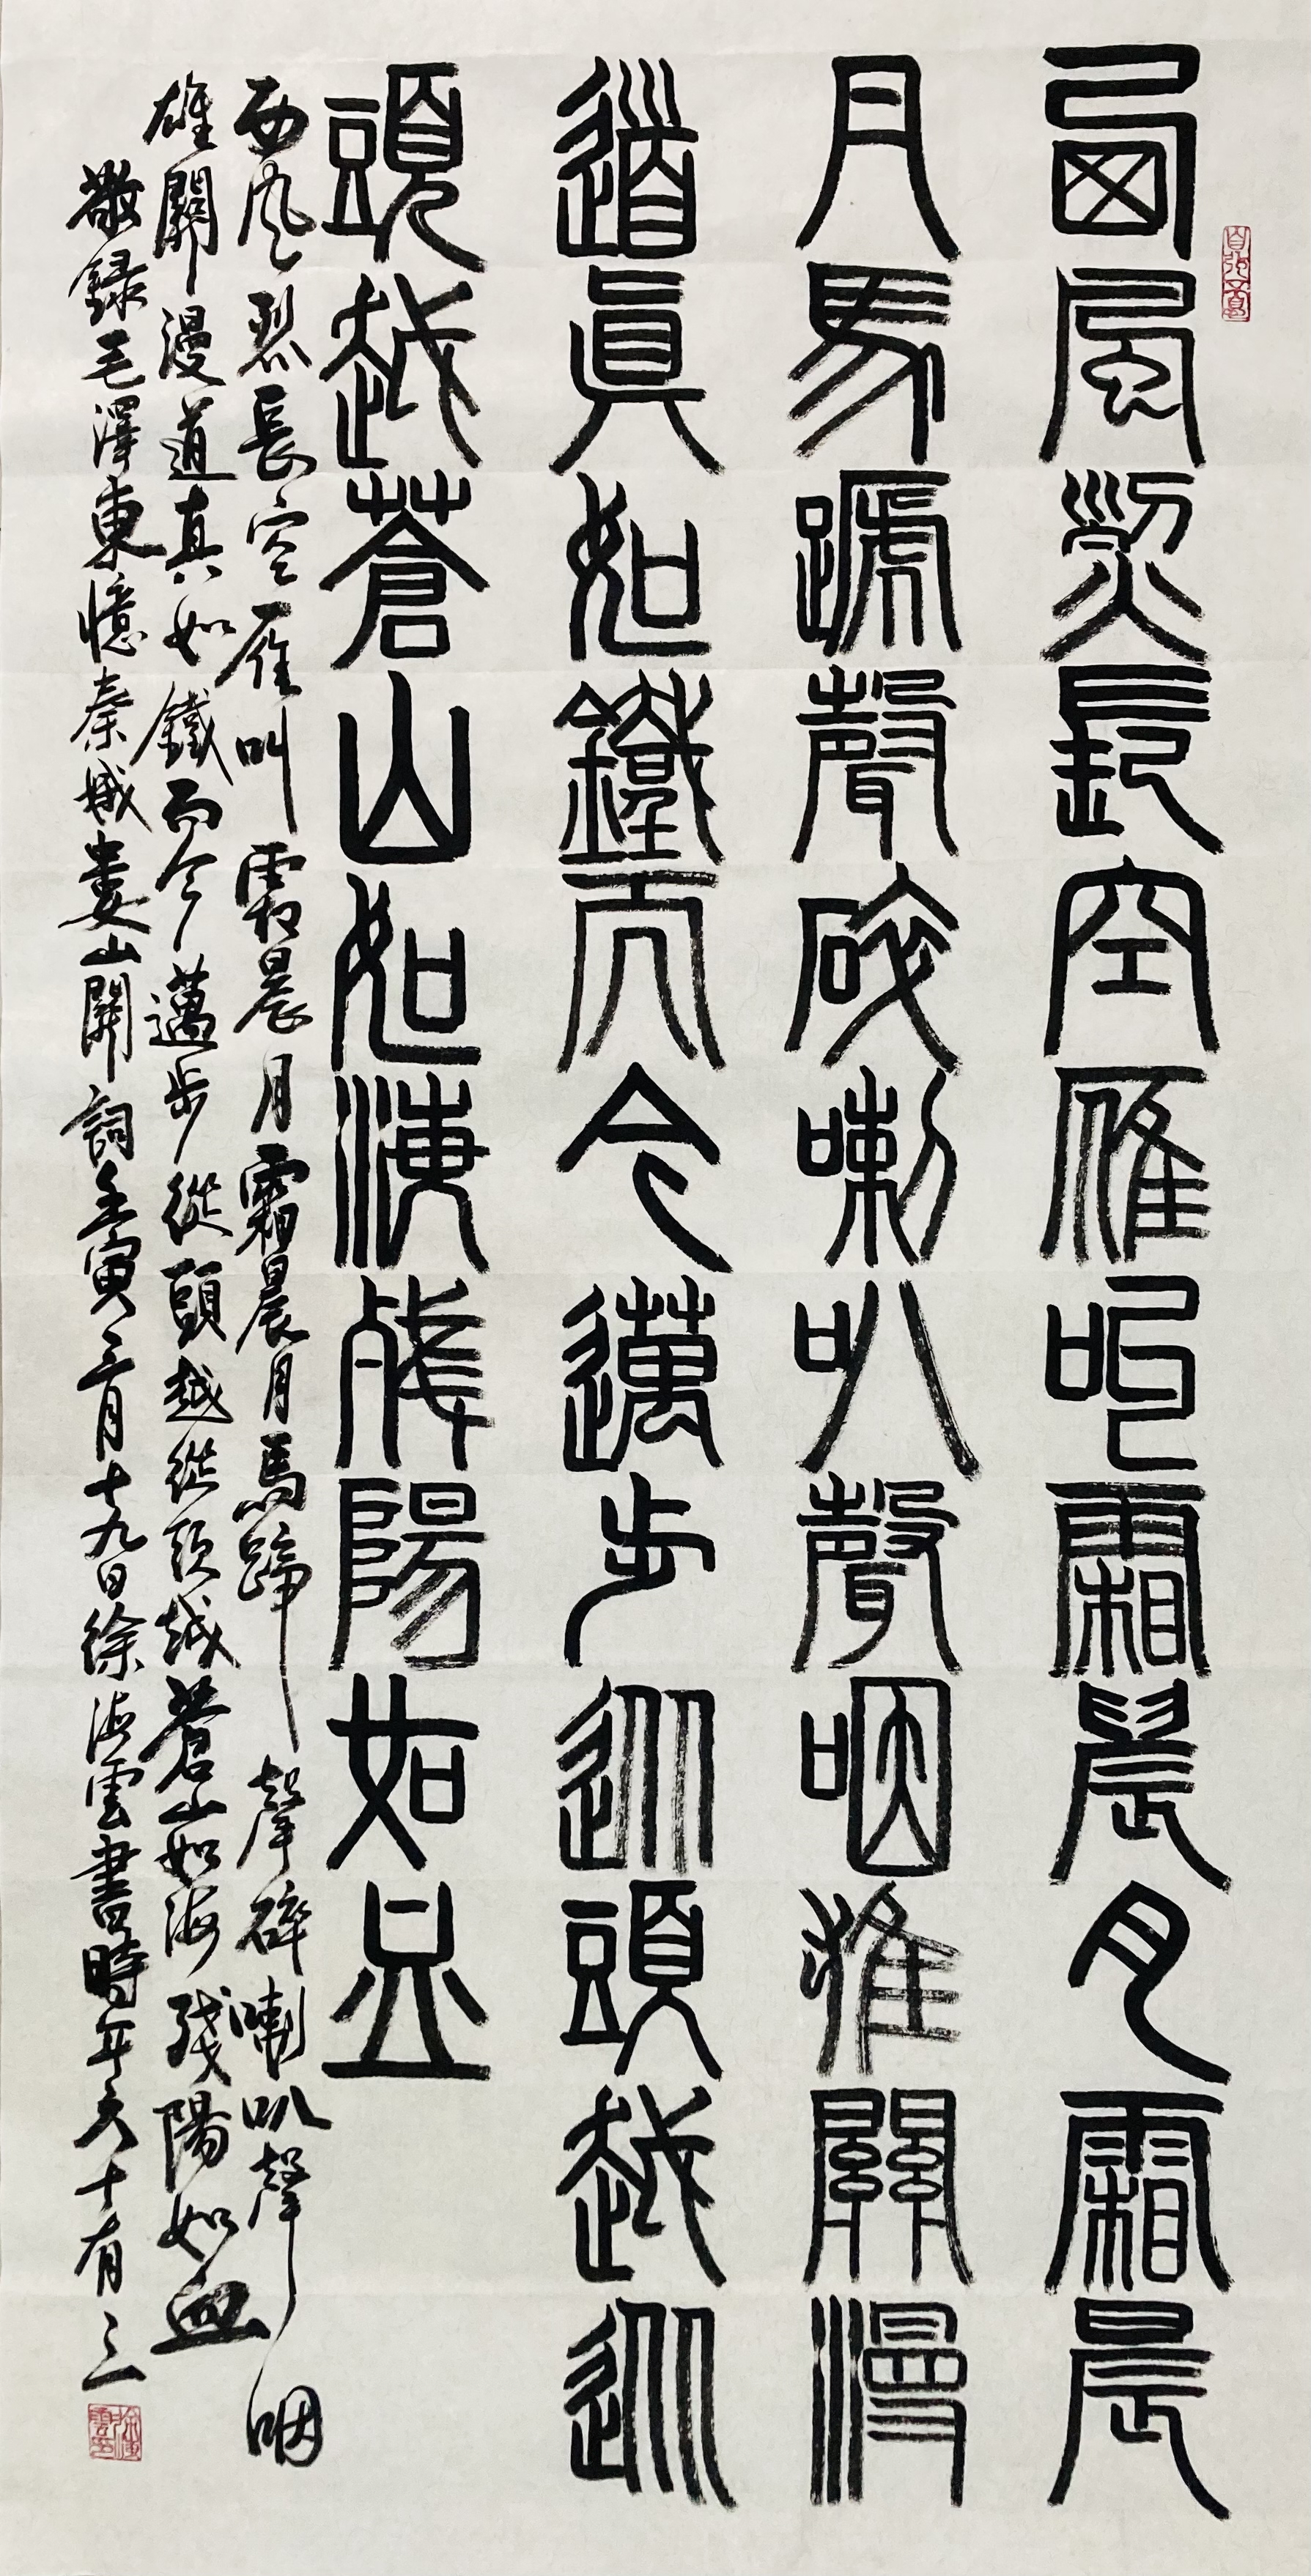 西風烈長空雁叫霜晨月霜晨
月馬蹄聲碎喇叭聲咽雄關漫
道真如鐵而今邁步從頭越從
頭越蒼山如海殘陽如血
西風烈長空雁叫霜晨月霜晨月馬蹄聲碎喇叭聲咽
雄關漫道真如鐵而今邁步從頭越從頭越蒼山如海殘陽如血
敬録毛澤東憶秦娥婁山關詞壬寅三月十九日徐海雲書時年六十有三